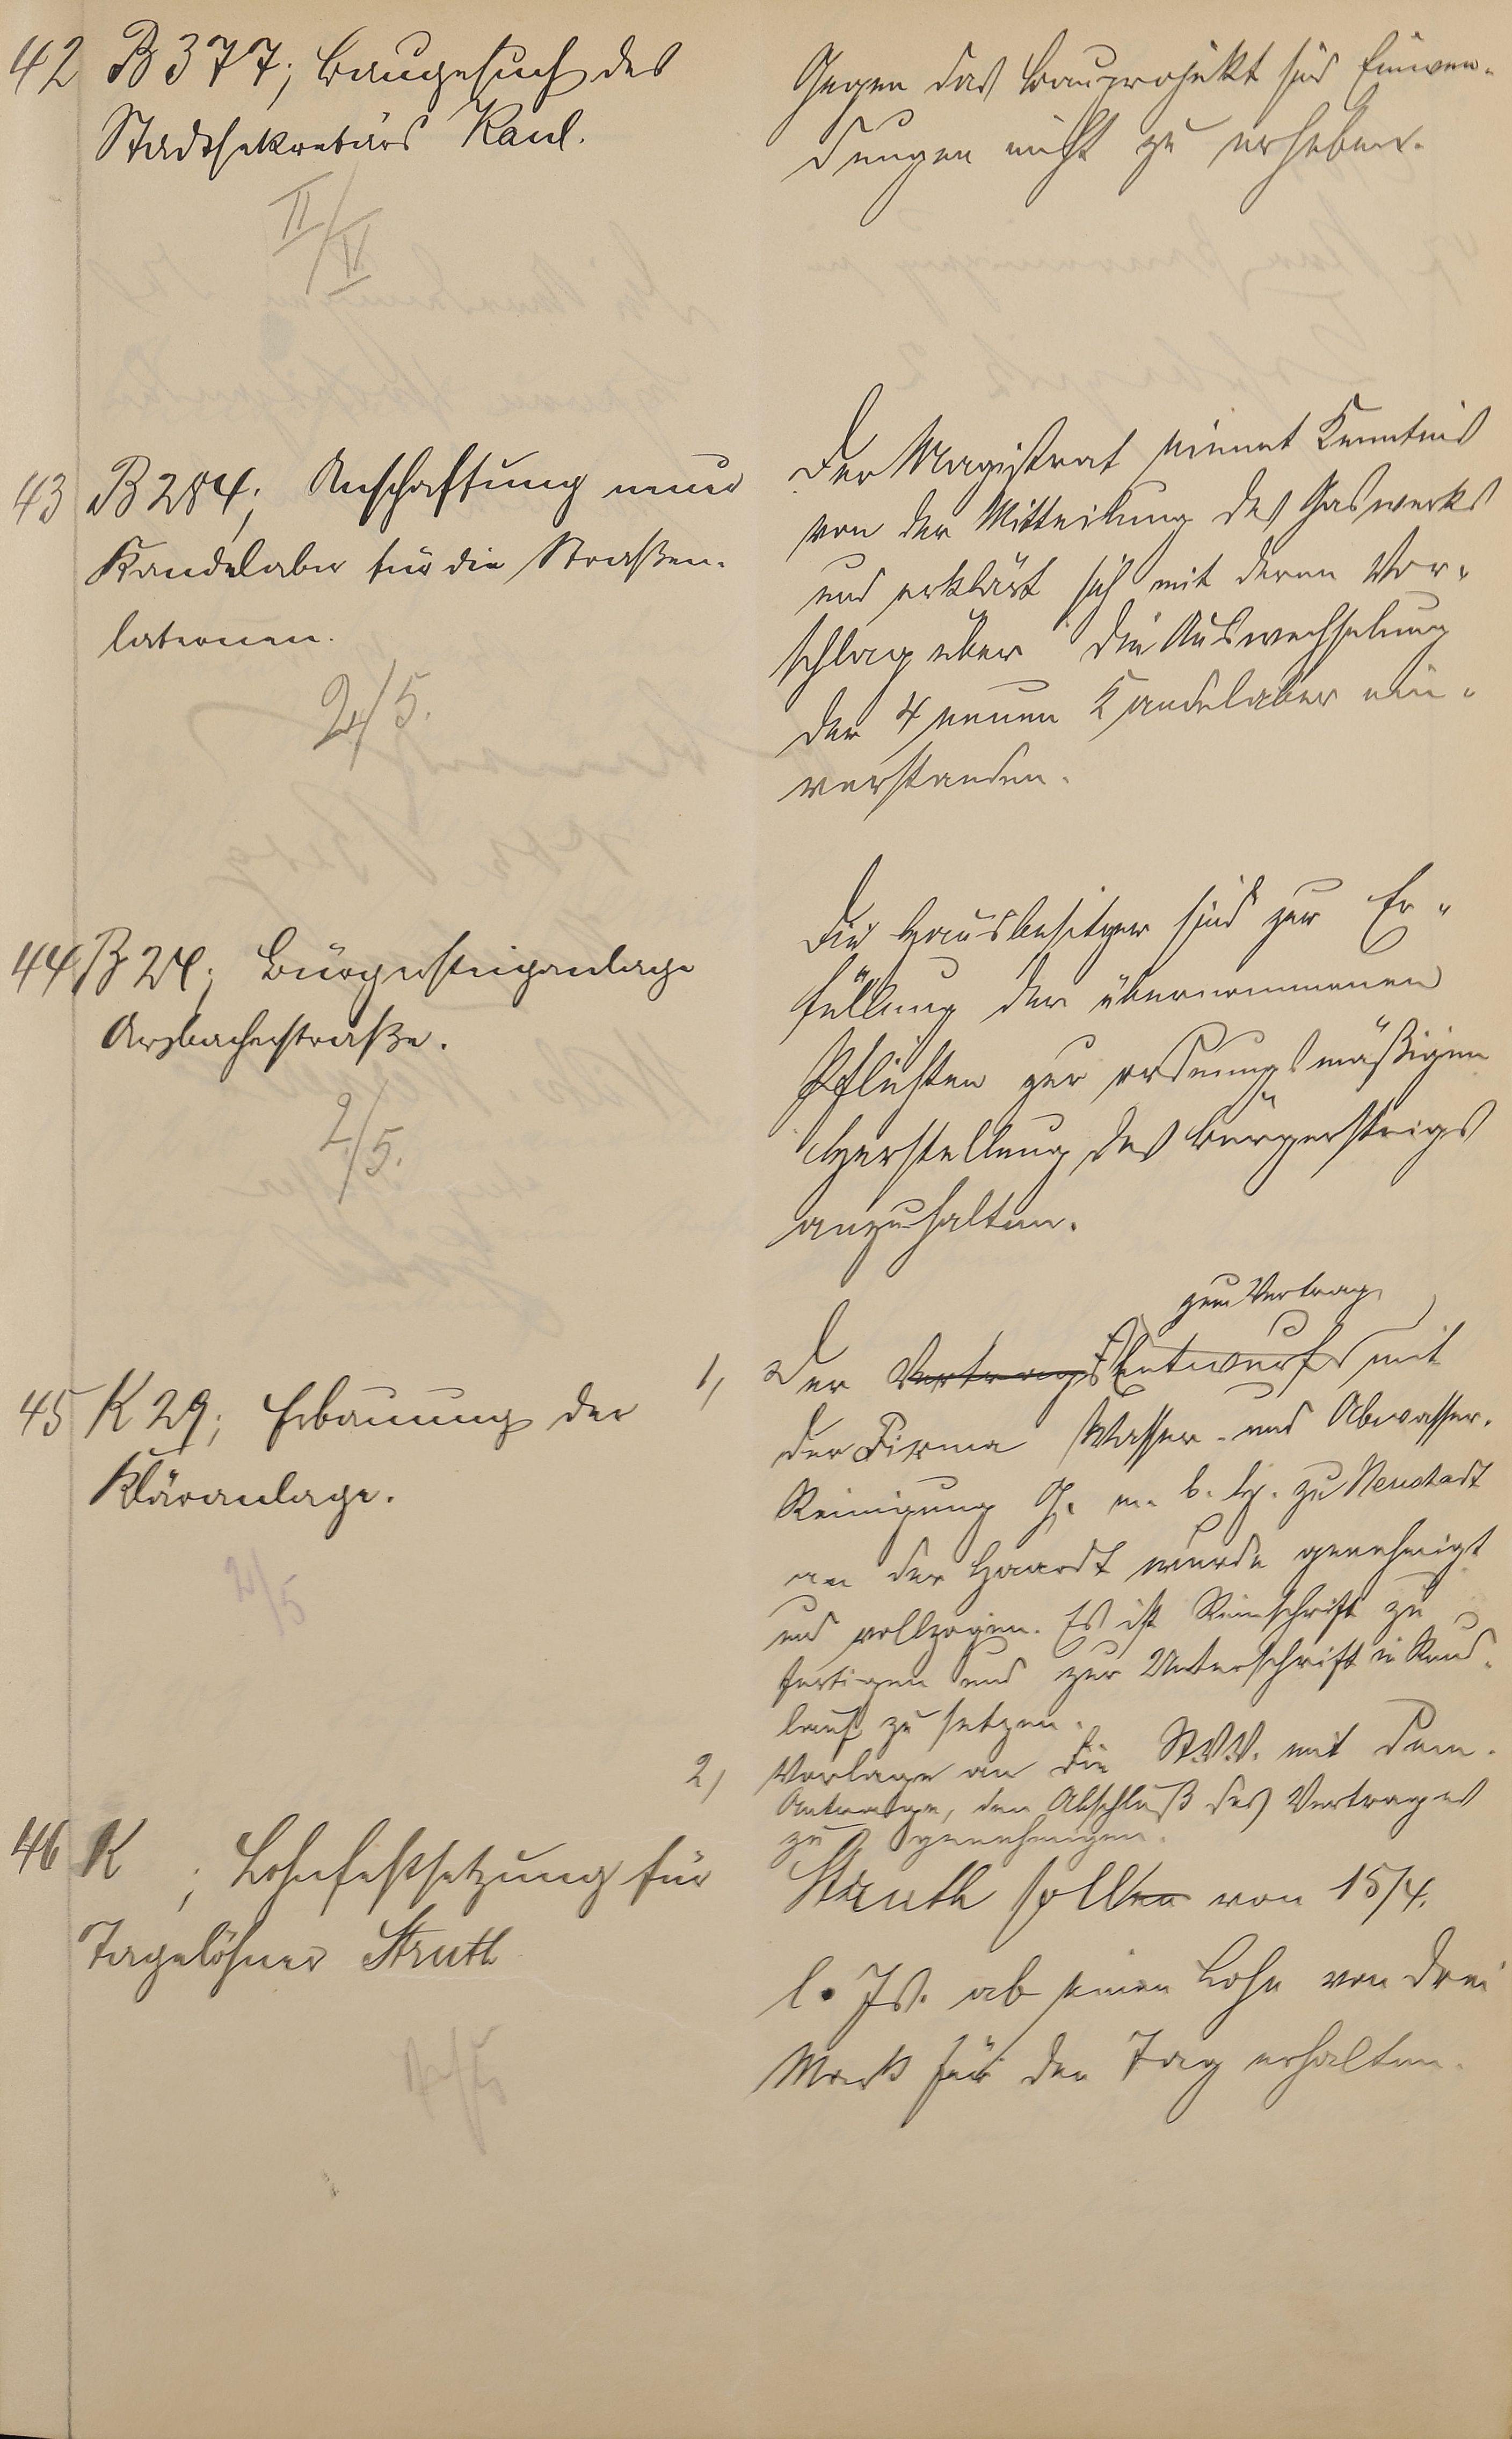 42 B 377; Baugesuch des
Stadtsekretärs Kaul.
II/V
Gegen das Bauprojekt sind Einwen-
dungen nicht zu erheben.
43 B 284; Anschaffung neuer
Kandelaber für die Straßen-
laternen.
2/5.
Der Magistrat nimmt Kenntnis
von der Mitteilung des Gaswerks
und erklärt sich mit deren Vor-
schlag über die Auswechselung
der 4 neuen Kandelaber ein-
verstanden.
44 B 24; Bürgersteiganlage
Arzbacherstraße.
2/5.
Die Hausbesitzer sind zur Er-
füllung der übernommenen
Pflichten zur ordnungsmäßigen
Herstellung des Bürgersteigs
anzuhalten.
45 K 29; Erbauung der
Kläranlage.
2/5
zum Vertrag
1, Der Vertrags Entwurf mit
der Firma Wasser- und Abwasser-
Reinigung G. m. b. H. zu Neustadt
an der Haardt wurde genehmigt
und vollzogen. Es ist Reinschrift zu
fertigen und zur Unterschrift in Rund-
lauf zu setzen.
2, Vorlage an die St.V.V. mit dem
Antrage, den Abschluß des Vertrages
zu genehmigen.
46 K ; Lohnfestsetzung für
Tagelöhner Struth
Struth sollen von 15/4.
l. Js. ab einen Lohn von drei
Mark für den Tag erhalten.